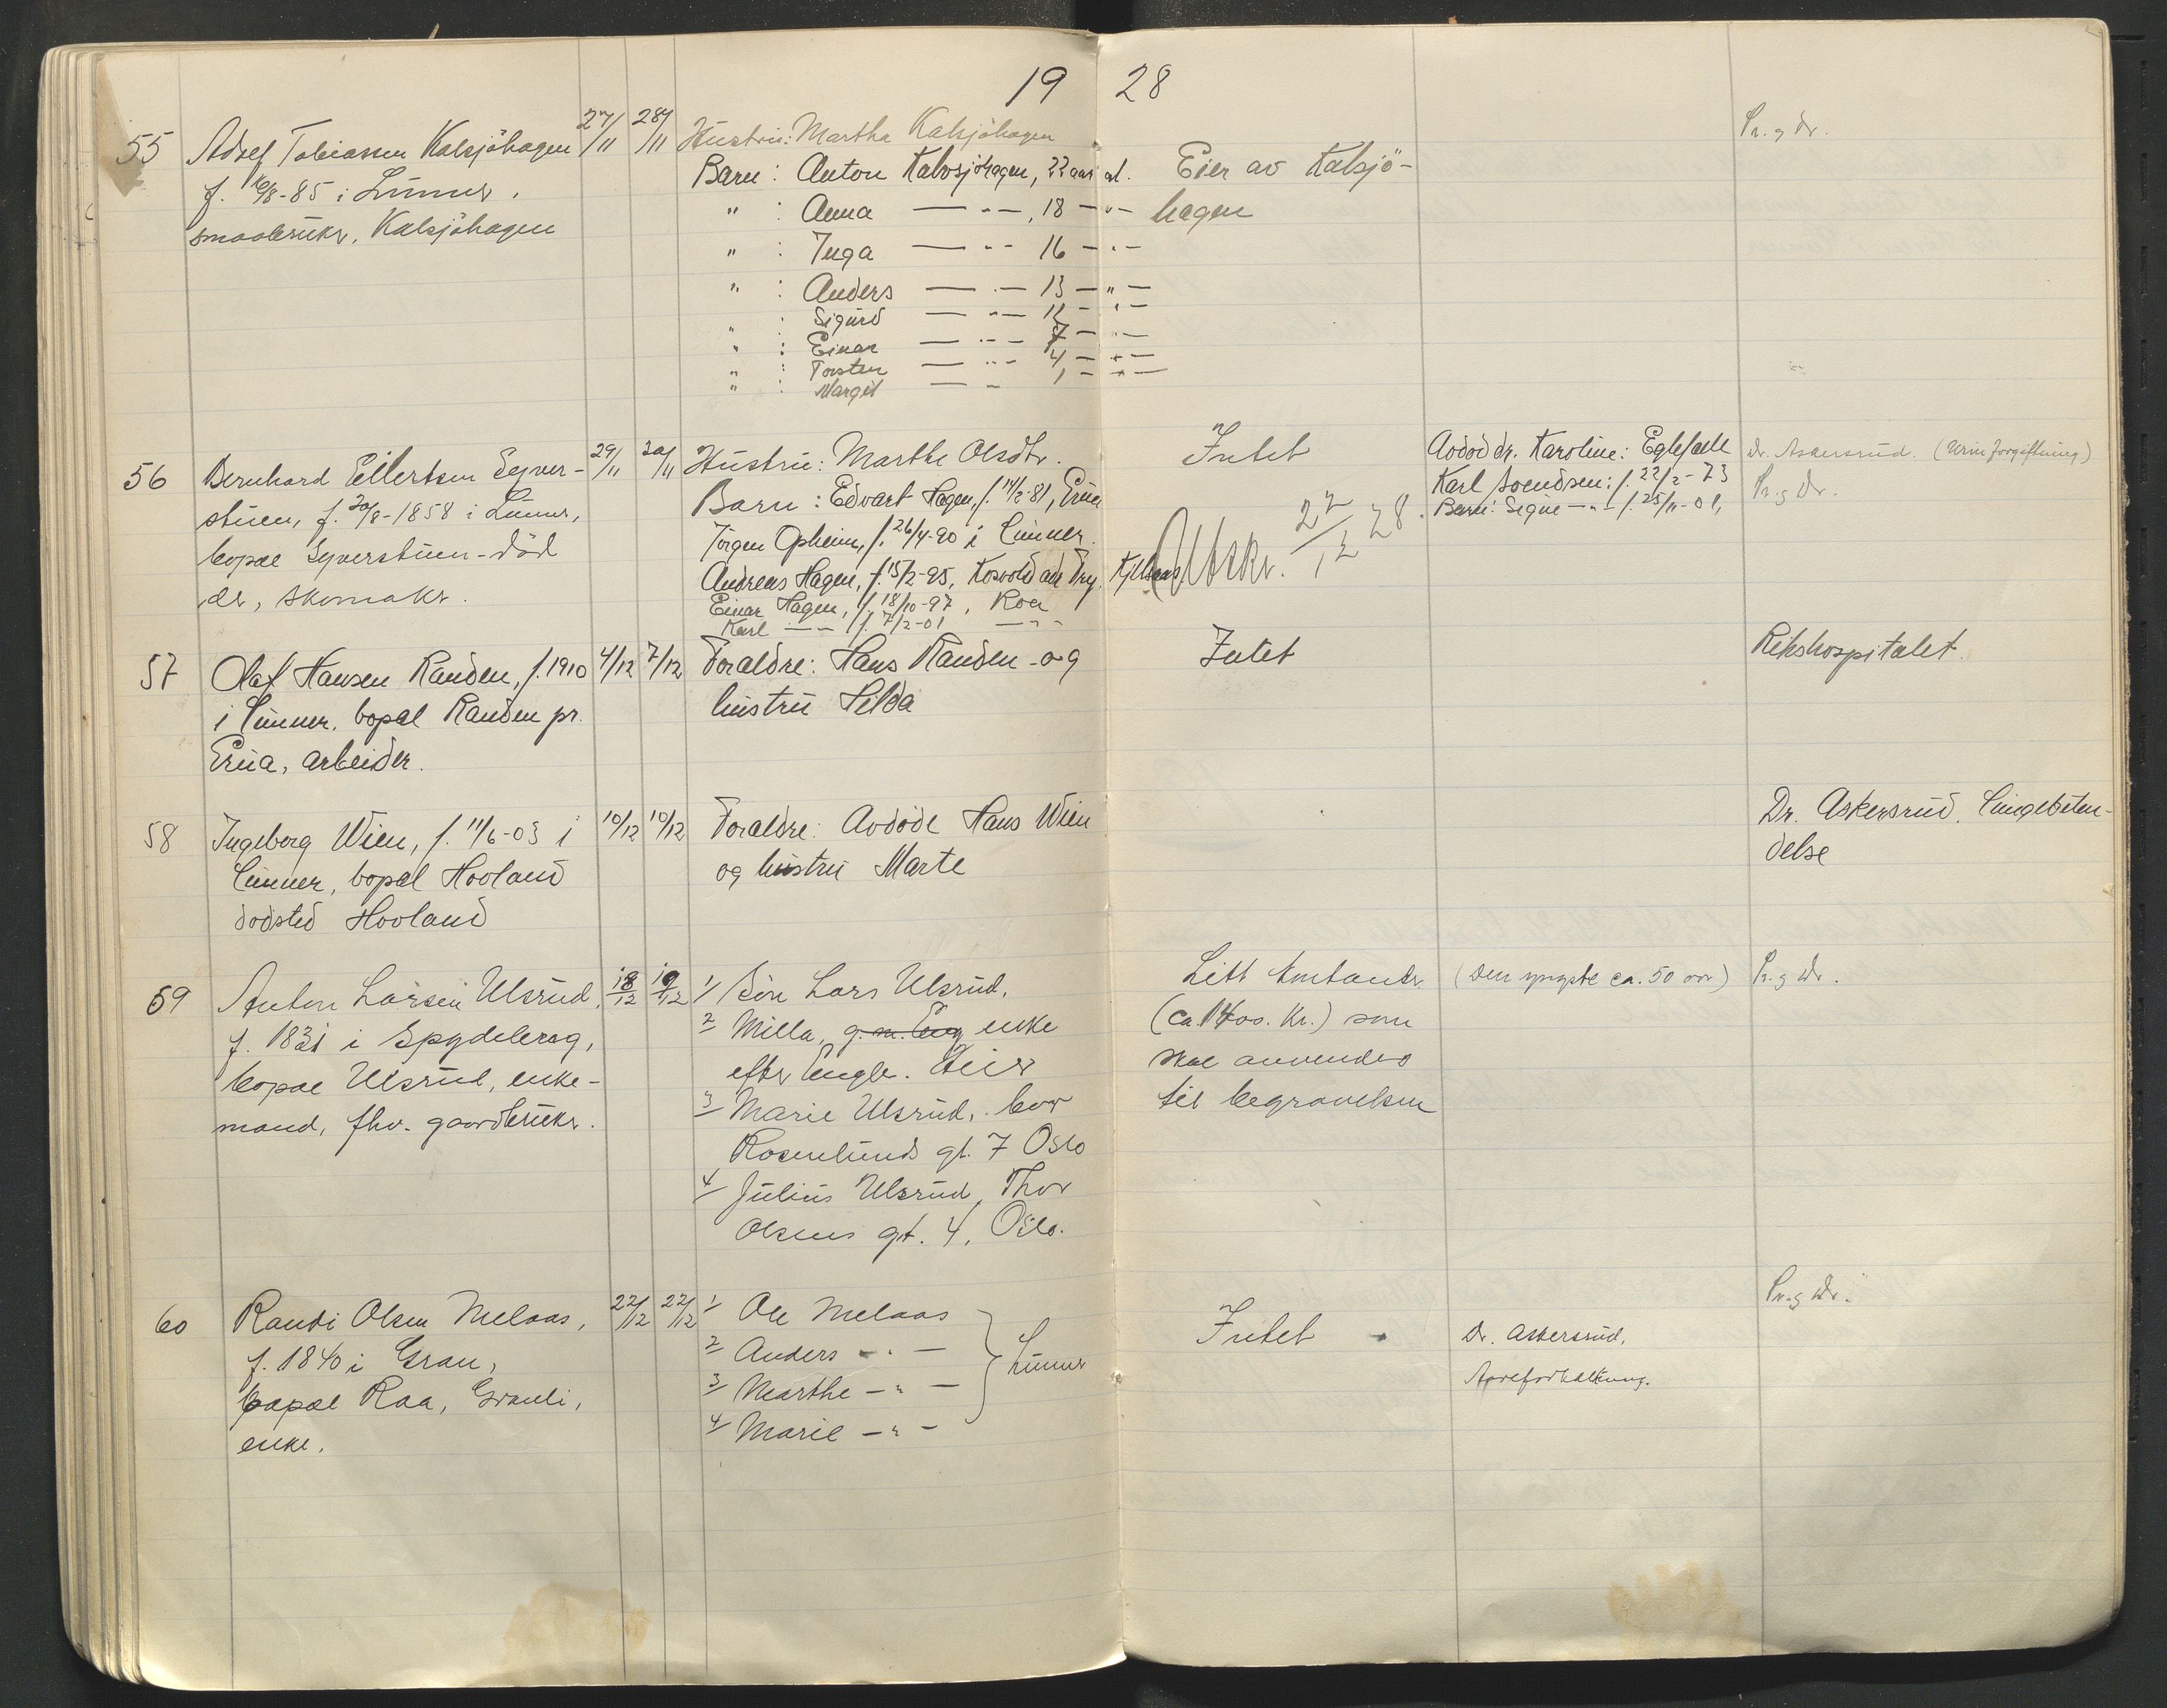 19 28
55 Adolf Tobiassen Kalsjöhagen 27/11 28/11 Hustru: Martha Kalsjöhagen Pr. g. dr.
f. 16/8-85 i Lunner, Barn: Anton Kalvsjöhagen, 22 aar gl. Eier av Kalsjö-
smaabruker, Kalsjöhagen " : Anna — " —, 18 — " — hagen
" : Inga — " — 16 — " —
" : Anders — " — 13 — " —
" : Sigurd — " — 12 — " —
" : Einar — " — 7 — " —
" : Torsten — " — 4 — " —
" : Margit — " — 1 — " —
56 Bernhard Ellertsen Syver- 29/11 30/11 Hustru: Marthe Olsdtr. Intet Avdød dr. Karoline: Eglefall Dr. Askersrud. (Urinforgiftning)
stuen, f. 30/8-1858 i Lunner, Barn: Edvart Hagen, f. 14/2-81, Grua Karl Svendsen: f. 22/2-73 Pr. g. dr.
bopæl Syverstuen - död Jörgen Opheim, f. 26/4-90 i Lunner. Barn: Signe — " — f. 25/11-01,
do, skomaker. Andreas Hagen, f. 15/2-95, Kjelsaas Utskr. 22/12 28.
Einar Hagen, f. 18/10-97, Roa
Karl — " — f. 7/2-01 — " —
57 Olaf Hansen Randen, f. 1910 4/12 7/12 Foraldre: Hans Randen og Intet Rikshospitalet.
i Lunner, bopæl Randen pr. hustru Hilda
Grua, arbeider.
58 Ingeborg Wien, f. 11/6-03 i 10/12 10/12 Foraldre: Avdöde Hans Wien Dr. Askersrud. Lungebeten-
Lunner, bopæl Hovland og hustru Marte delse
dödsted Hovland
59 Anton Larsen Ulsrud, 18/12 19/12 1/ Sön Lars Ulsrud. Litt kontanter (Den yngste ca. 50 aar) Pr. g. dr.
f. 1831 i Spydeberg, 2/ Milla, g. m. Eng enke (ca 1400. Kr.) som
bopæl Ulsrud, enke- efter Engle. Heier skal anvendes
mand, fhv. gaardbruker. 3/ Marie Ulsrud, bor til begravelsen
Rosenlunds gt. 7 Oslo
4/ Julius Ulsrud, Thor
Olsens gt. 4, Oslo.
60 Randi Olsen Melaas, 22/12 22/12 1/ Ole Melaas Intet Dr. Askersrud, Pr. g. dr.
f. 1840 i Gran, 2/ Anders — " — Lunner Aareforkalkning.
bopæl Roa, Granli, 3/ Marthe — " —
enke. 4/ Marie — " —